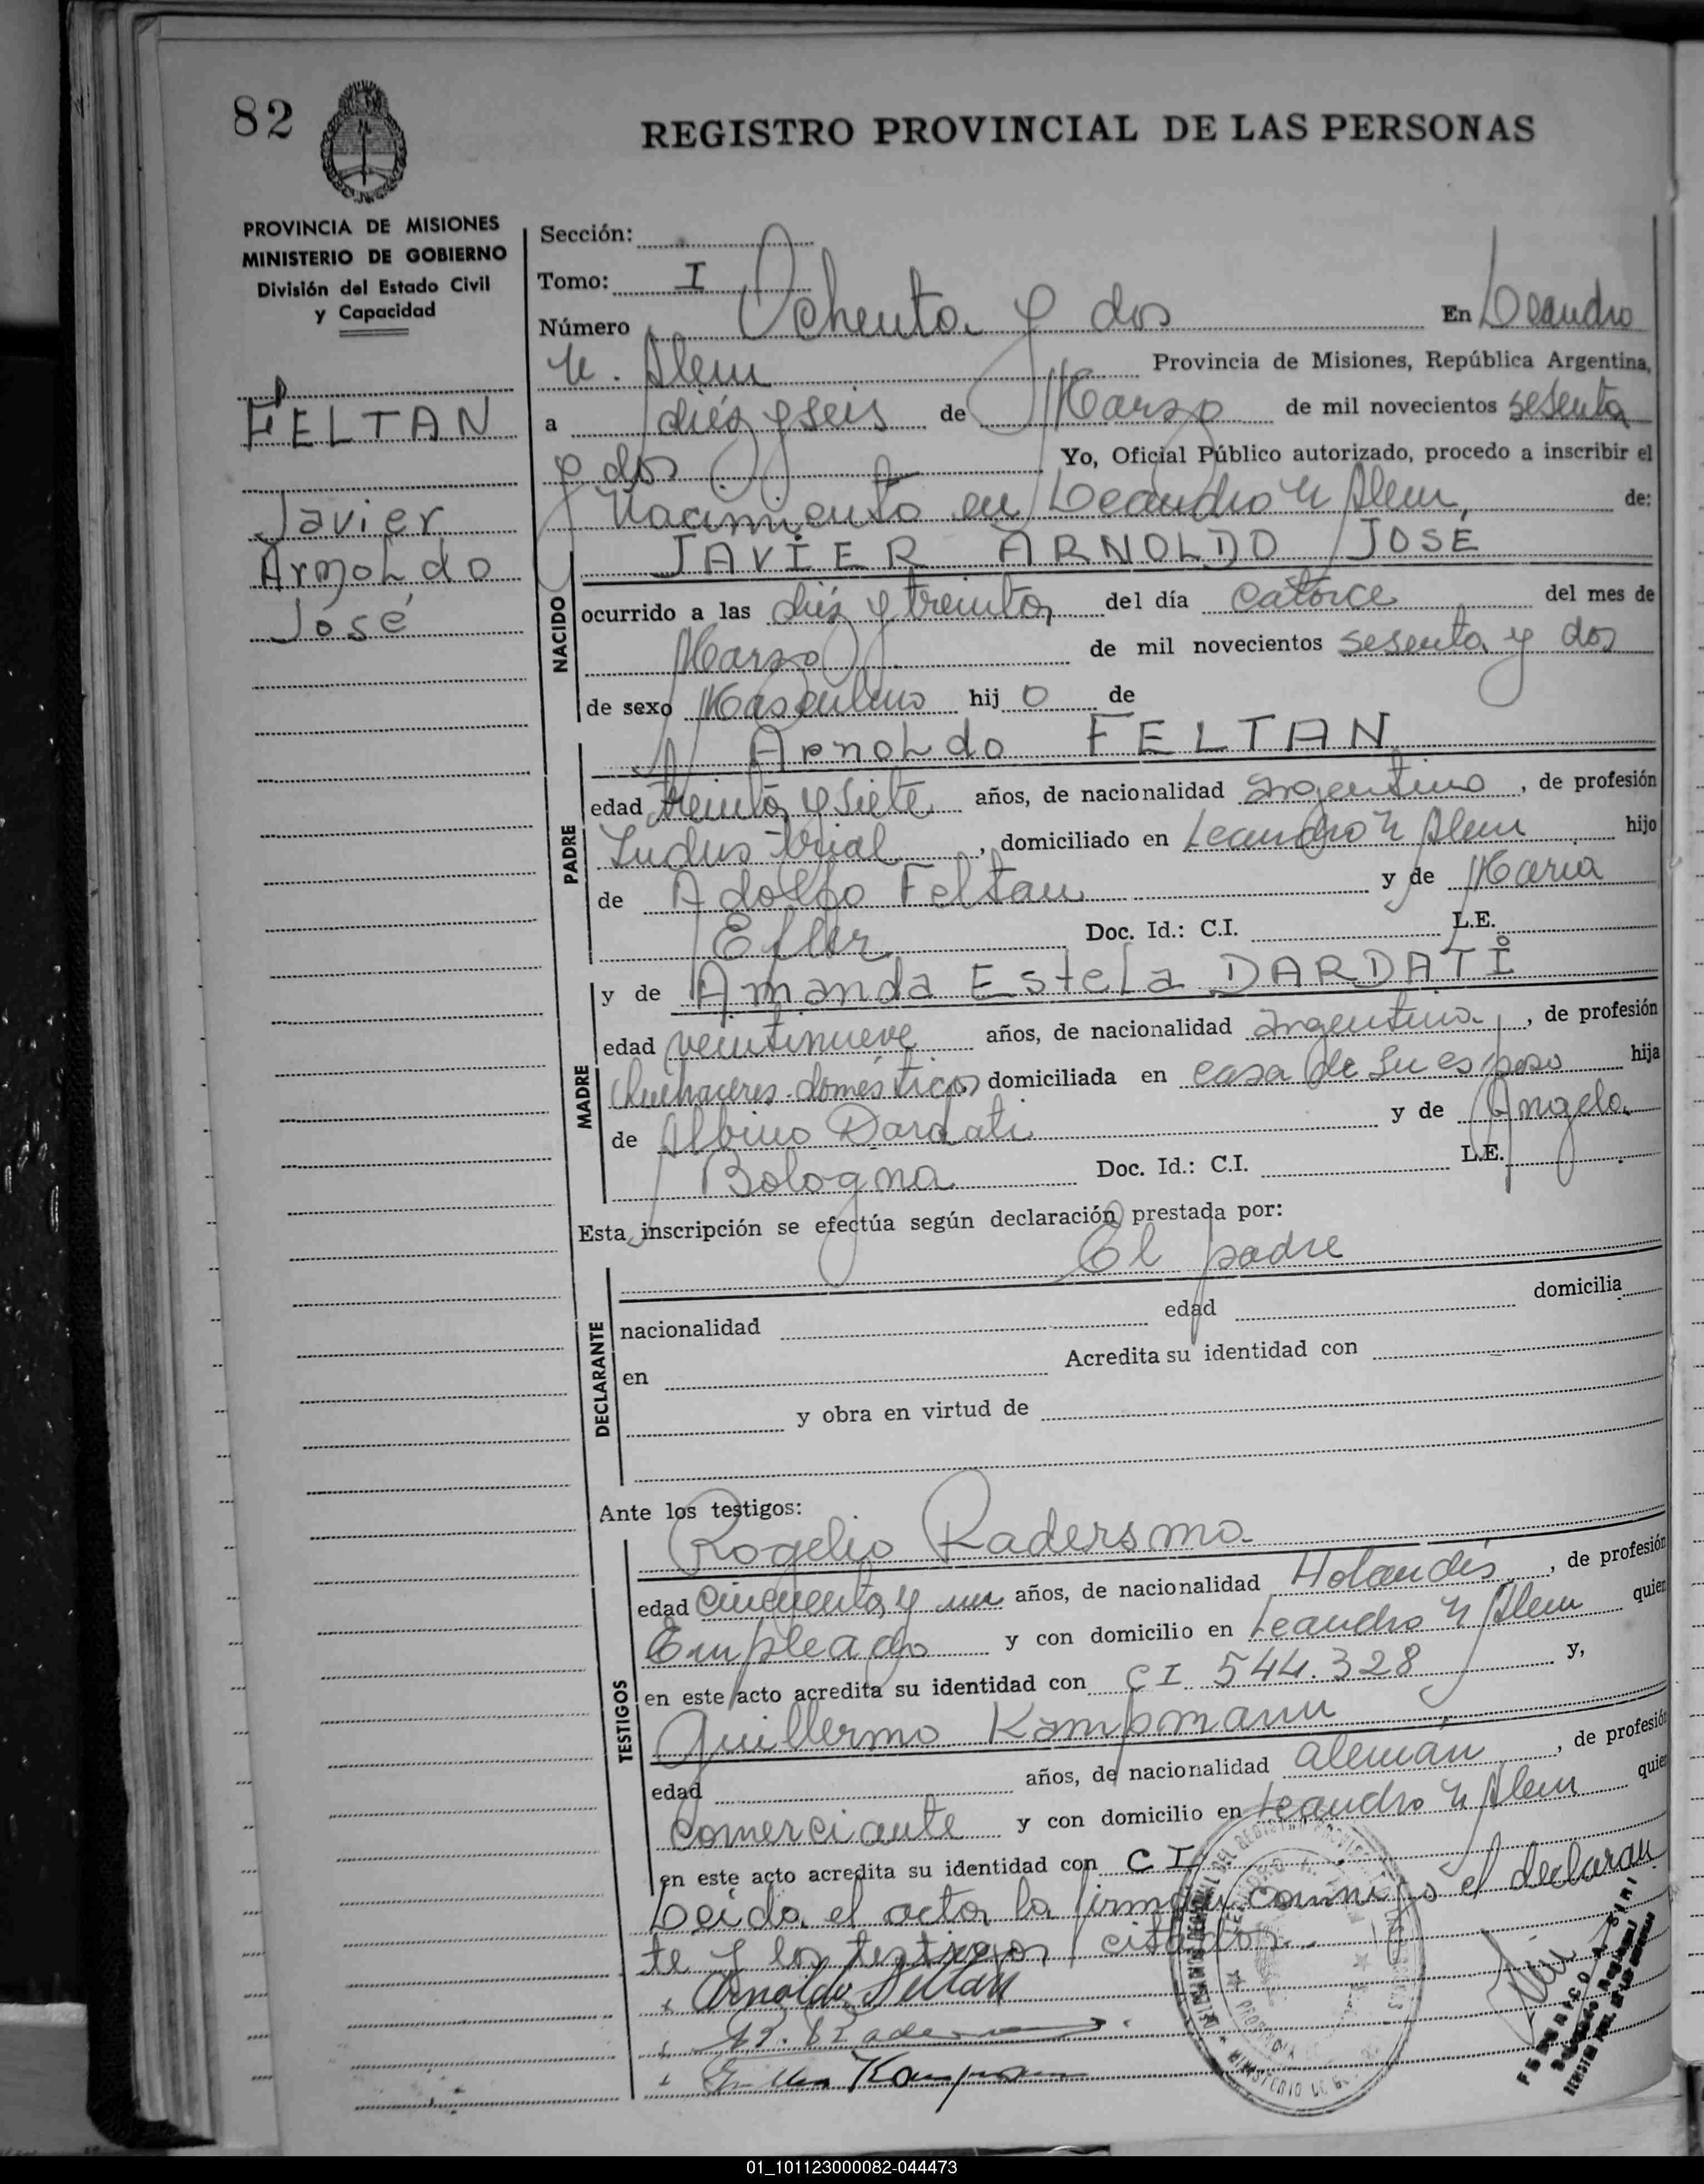 82
REGISTRO PROVINCIAL DE LAS PERSONAS
PROVINCIA DE MISIONES
MINISTERIO DE GOBIERNO
División del Estado Civil
y Capacidad
FELTAN
Javier
Arnoldo
José
Sección:
Tomo: I
Número Ochenta y dos En Leandro
N. Alem Provincia de Misiones, República Argentina,
a diéz y seis de Marzo de mil novecientos sesenta
y dos Yo, Oficial Público autorizado, procedo a inscribir el
Nacimiento en Leandro N Alem, de:
JAVIER ARNOLDO JOSÉ
NACIDO
ocurrido a las diéz y treinta, del día catorce del mes de
Marzo de mil novecientos sesenta y dos
de sexo Masculino hij o de
Arnoldo FELTAN
PADRE
edad treinta y siete años, de nacionalidad argentino, de profesión
Industrial, domiciliado en Leandro N Alem hijo
de Adolfo Feltan y de Maria
Efler Doc. Id.: C.I. L.E.
MADRE
y de Amanda Estela DARDATI
edad veintinueve años, de nacionalidad argentina, de profesión
Quehaceres domésticos domiciliada en casa de su esposo hija
de Albino Dardati y de Angela
Bologna Doc. Id.: C.I. L.E.
Esta inscripción se efectúa según declaración prestada por:
El padre
DECLARANTE
nacionalidad edad domicilia
en Acredita su identidad con
y obra en virtud de
Ante los testigos:
Rogelio Radersma
TESTIGOS
edad cincuenta y un años, de nacionalidad Holandés, de profesión
Empleado y con domicilio en Leandro N Alem quien
en este acto acredita su identidad con CI 544.328 y,
Guillermo Kampmann
edad años, de nacionalidad aleman, de profesión
comerciante y con domicilio en Leandro N Alem quien
en este acto acredita su identidad con CI
Leida el acta la firman conmigo el declaran
te y los testigos citados.
Arnoldo Feltan
01_101123000082-044473